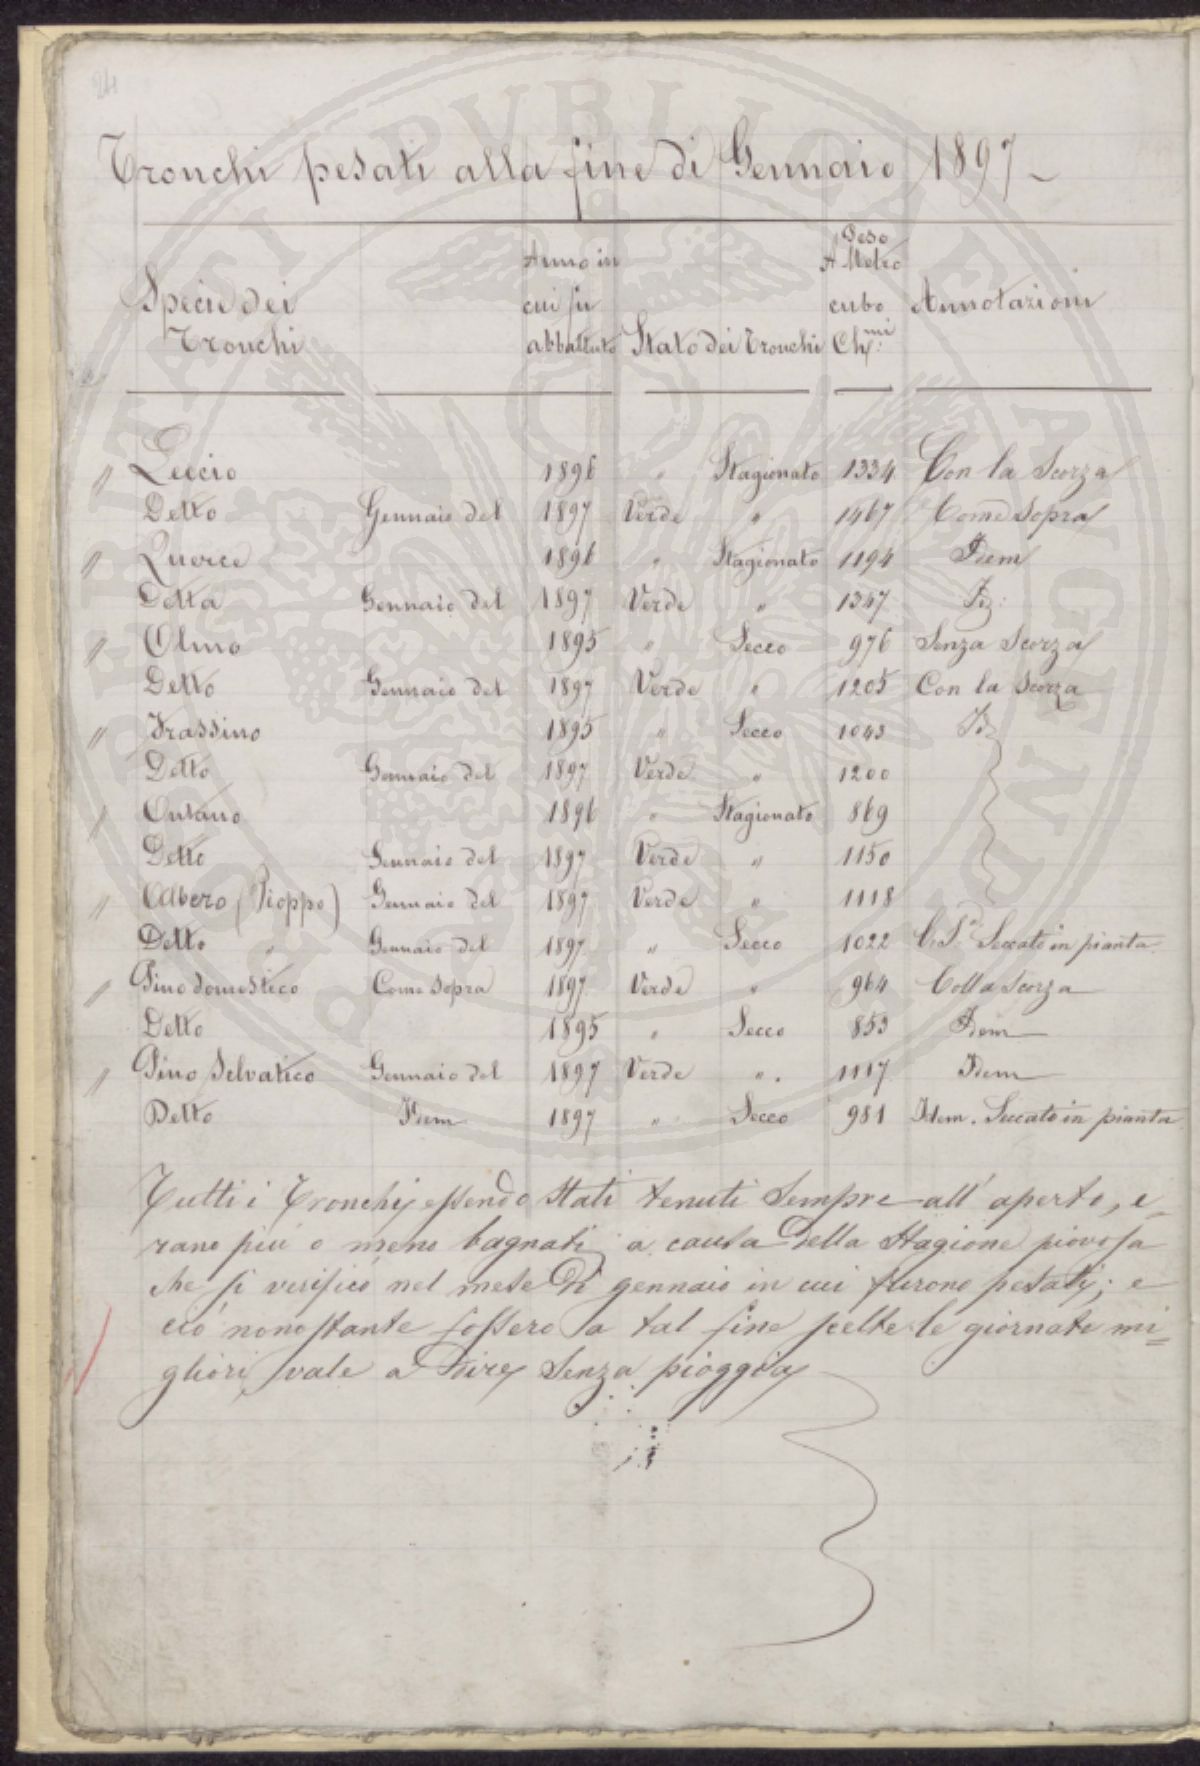 24
Tronchi pesati alla fine di Gennaio 1897
Specie dei Tronchi | Anno in cui fu abbattuto | Stato dei Tronchi | Peso A Metro cubo Ch:mi | Annotazioni
" Leccio 1896 " Stagionato 1334 Con la Scorza
Detto Gennaio del 1897 Verde " 1467 Come Sopra
" Querce 1896 " Stagionato 1194 Idem
Detta Gennaio del 1897 Verde " 1347 Id:
" Olmo 1895 " Secco 976 Senza Scorza
Detto Gennaio del 1897 Verde " 1205 Con la Scorza
" Frassino 1895 " Secco 1043 Id
Detto Gennaio del 1897 Verde " 1200
" Ontano 1896 " Stagionato 869
Detto Gennaio del 1897 Verde " 1150
" Albero (Pioppo) Gennaio del 1897 Verde " 1118
Detto " Gennaio del 1897 " Secco 1022 C. Sa. Seccato in pianta
" Pino domestico Come Sopra 1897 Verde " 964 Colla Scorza
Detto 1895 " Secco 853 Idem
" Pino Selvatico Gennaio del 1897 Verde " 1117 Idem
Detto Idem 1897 " Secco 981 Idem. Seccato in pianta
Tutti i Tronchi, essendo Stati tenuti Sempre all' aperto, e=
rano più o meno bagnati, a causa della Stagione piovosa
che si verificò nel mese di gennaio in cui furono pesati; e
ciò nonostante fossero a tal fine scelte le giornate mi=
gliori, vale a dire, Senza pioggia